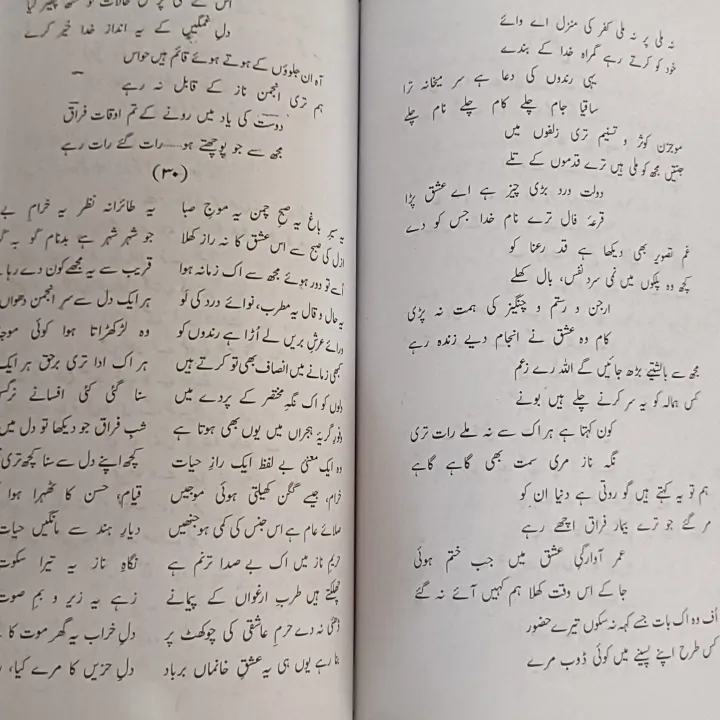 نہ ملی پر نہ ملی کفر کی منزل اے وائے
خود کو کرتے رہے گمراہ خدا کے بندے
یہی رندوں کی دعا ہے سر میخانہ ترا
ساقیا جام چلے کام چلے نام چلے
موجزن کوثر و تسنیم تری زلفوں میں
جنتیں مجھ کو ملی ہیں ترے قدموں کے تلے
دولت درد بڑی چیز ہے اے عشق پڑا
قرعۂ فال ترے نام خدا جس کو دے
غم تصویر بھی دیکھا ہے قد رعنا کو
کچھ وہ پلکوں میں نمی سرد نفس، بال کھلے
ارجن و رستم و چنگیز کی ہمت نہ پڑی
کام وہ عشق نے انجام دیے زندہ رہے
مجھ سے بالشتیے بڑھ جائیں گے اللہ رے زعم
کس ہمالہ کو یہ سر کرنے چلے ہیں بونے
کون کہتا ہے ہر اک سے نہ ملے رات تری
نگہ ناز مری سمت بھی گاہے گاہے
ہم تو یہ کہتے ہیں گو روتی ہے دنیا ان کو
مر گئے جو ترے بیمار فراق اچھے رہے
عمر آوارگیِ عشق میں جب ختم ہوئی
جا کے اس وقت کھلا ہم کہیں آئے نہ گئے
اف وہ اک بات جسے کہہ نہ سکوں تیرے حضور
کس طرح اپنے پسینے میں کوئی ڈوب مرے
دلِ غمگیں کے یہ انداز خدا خیر کرے
آہ ان جلووں کے ہوتے ہوئے قائم ہیں حواس
ہم تری انجمن ناز کے قابل نہ رہے
دوست کی یاد میں رونے کے تم اوقات فراق
مجھ سے جو پوچھتے ہو......رات گئے رات رہے
(۳۰)
یہ سیر باغ یہ صبح چمن یہ موج صبا یہ طائرانہ نظر یہ خرام
ازل کی صبح سے اس عشق کا نہ راز کھلا جو شہر شہر ہے بدنام گو بہ
اے تو دور ہوئے مجھ سے اک زمانہ ہوا قریب سے یہ مجھے کون دے رہا
یہ حال و قال یہ مطرب، نوائے درد کی لَو ہر ایک دل سے سر انجمن دھواں
ورائے عرش بریں لے اڑا ہے رندوں کو وہ لڑکھڑاتا ہوا کوئی
کبھی زمانے میں انصاف بھی تو کرتے ہیں ہر اک ادا تری برحق ہر ایک
دلوں کو اک نگہ مختصر کے پردے میں سنا گئی کئی افسانے
وفور گریۂ ہجراں میں یوں بھی ہوتا ہے شب فراق جو دیکھا تو دل میں
وہ ایک معنیِ بے لفظ ایک راز حیات کچھ اپنے دل سے سنا کچھ تری
خرام، جیسے گگن کھیلتی ہوئی موجیں قیام، حسن کا ٹھہرا ہوا
صلائے عام ہے اس جنس کی کمی ہو جنھیں دیار ہند سے مانگیں حیات
حریم ناز میں اک بے صدا ترنم ہے نگاہ ناز یہ تیرا سکوت
چھلکتے ہیں طرب ارغواں کے پیمانے زہے یہ زیر و بم صوت
ڈھئی نہ دے حرم عاشقی کی چوکھٹ پر دل خراب یہ گھر موت کا
بنا رہے یوں ہی یہ عشق خانماں برباد دل حزیں کا مرے کیا،